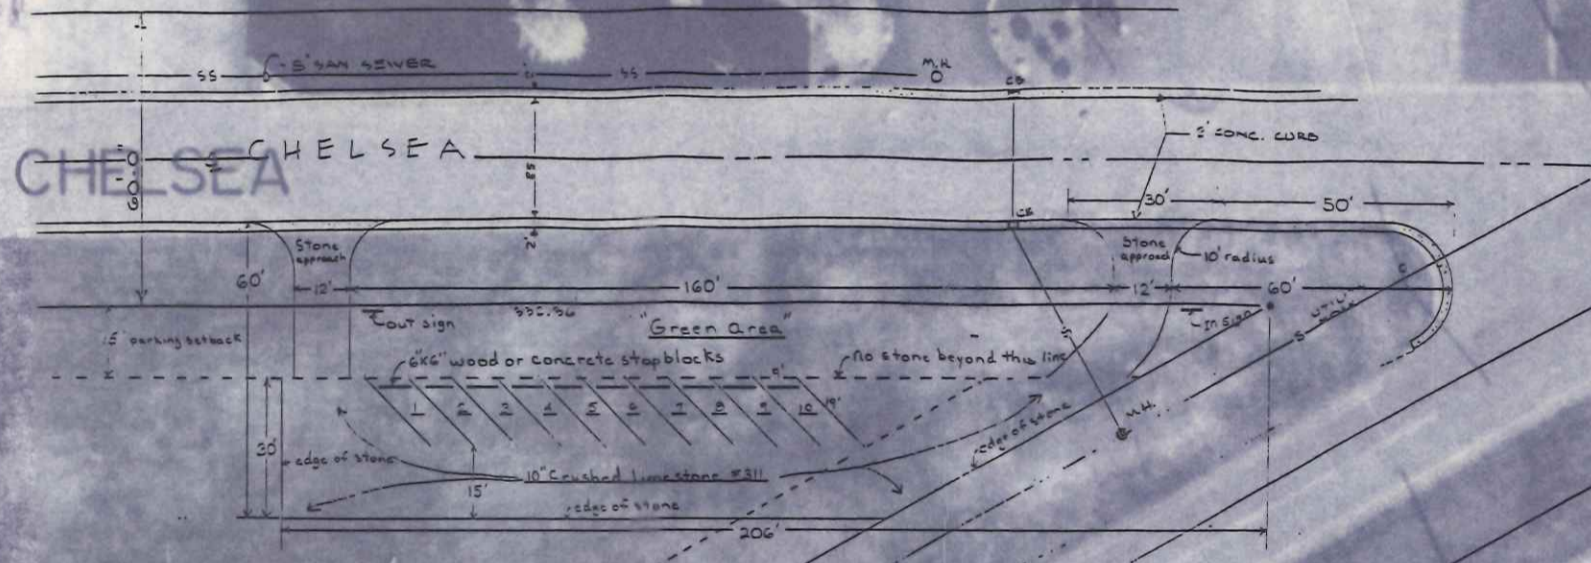 SS
8" SAN SEWER
SS
M.H.
CB
2' CONC. CURB
CHELSEA
CHELSEA
60'-0"
2'
30'
50'
CB
Stone
approach
Stone
approach
10' radius
60'
12'
160'
12'
60'
Out sign
"Green area"
In Sign
S
S
15' parking setback
6"x6" wood or concrete stopblocks
no stone beyond this line
1
2
3
4
5
6
7
8
9
10
19'
M.H.
30'
edge of stone
edge of stone
10" Crushed limestone #311
15'
edge of stone
206'